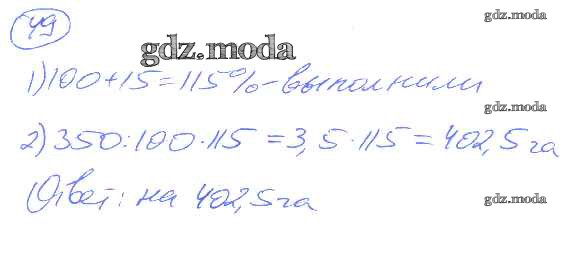 49
gdz.moda
gdz.moda
1) 100 + 15 = 115% - выполнили
gdz.moda
2) 350 : 100 · 115 = 3,5 · 115 = 402,5 га
Ответ: на 402,5 га
gdz.moda